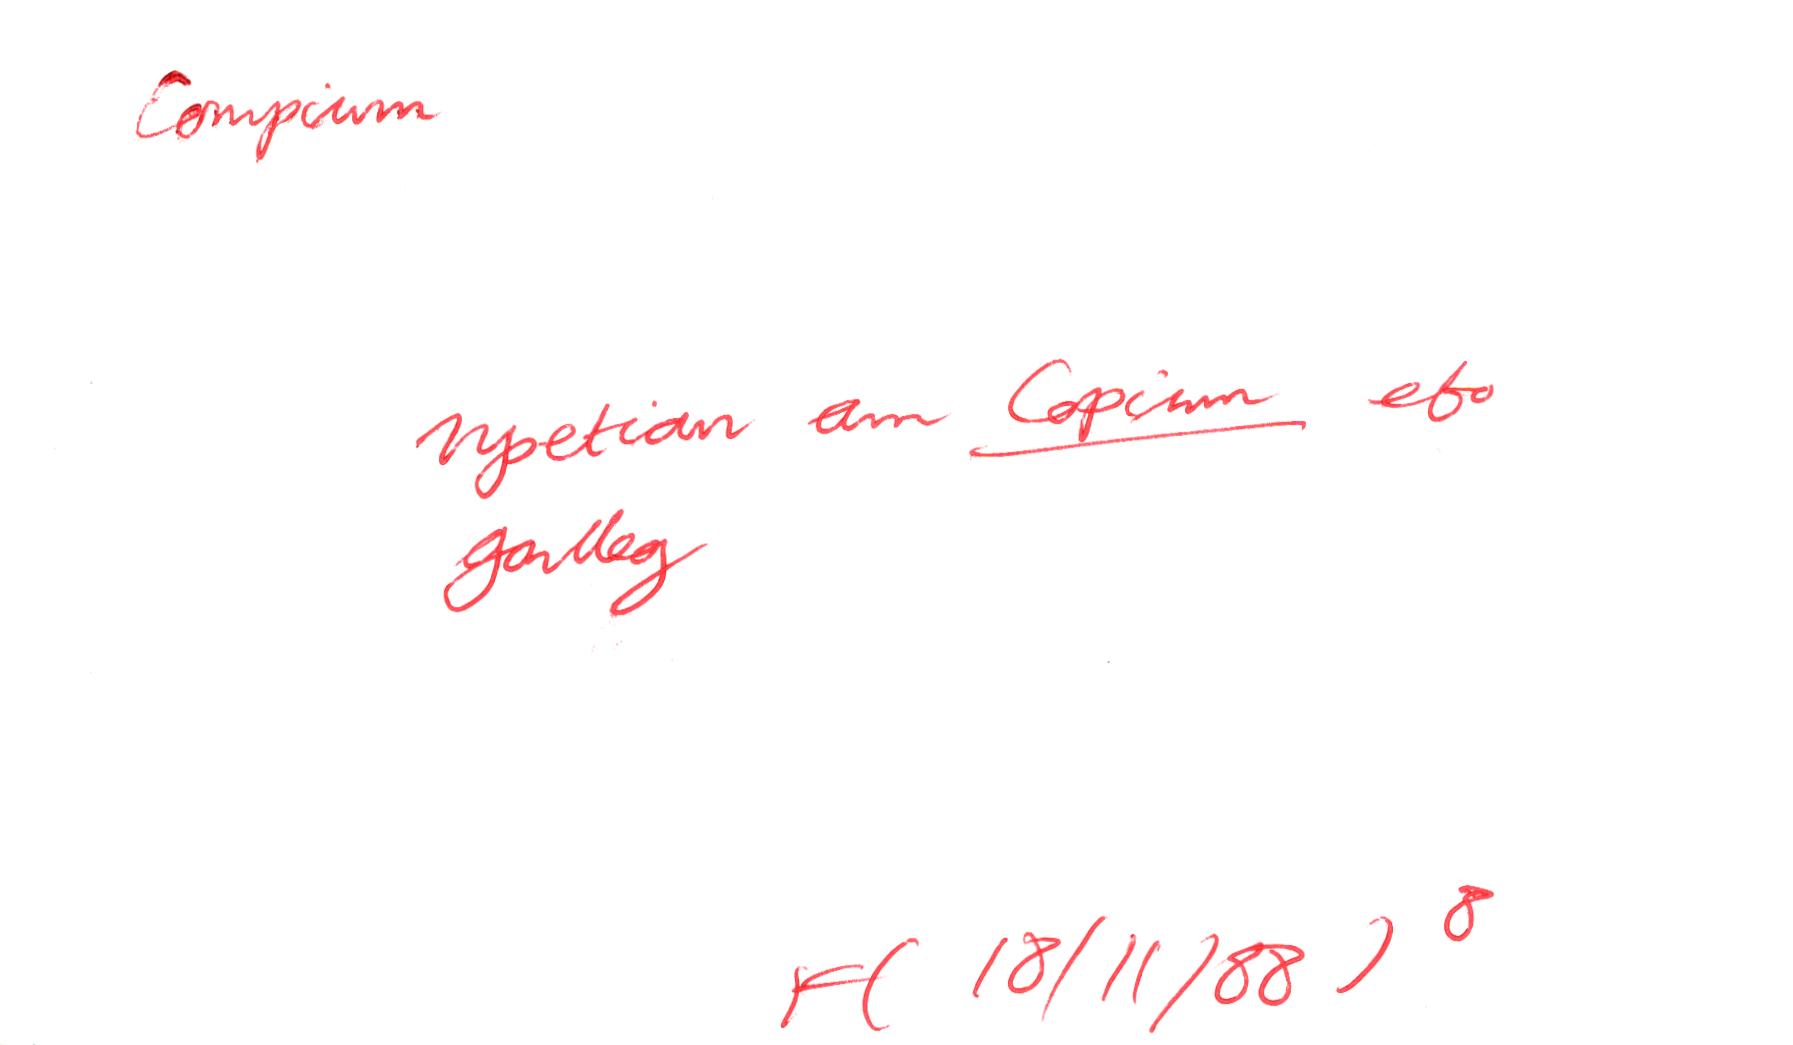 Compium
Npetian am Copium efo
garlleg
F(18/11/88)8